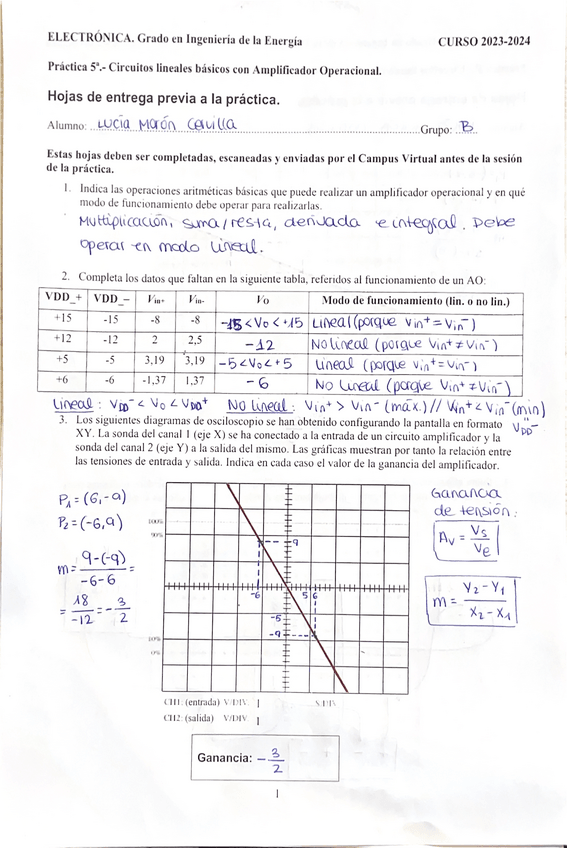 ELECTRÓNICA. Grado en Ingeniería de la Energía CURSO 2023-2024
Práctica 5ª.- Circuitos lineales básicos con Amplificador Operacional.
Hojas de entrega previa a la práctica.
Alumno: Lucía Morón Cervilla Grupo: B
Estas hojas deben ser completadas, escaneadas y enviadas por el Campus Virtual antes de la sesión
de la práctica.
1. Indica las operaciones aritméticas básicas que puede realizar un amplificador operacional y en qué
modo de funcionamiento debe operar para realizarlas.
Multiplicación, suma/resta, derivada e integral. Debe
operar en modo lineal.
2. Completa los datos que faltan en la siguiente tabla, referidos al funcionamiento de un AO:
VDD_+ VDD_− Vin+ Vin- Vo Modo de funcionamiento (lin. o no lin.)
+15 -15 -8 -8 -15 < Vo < +15 Lineal (porque Vin+ = Vin-)
+12 -12 2 2,5 -12 No lineal (porque Vin+ ≠ Vin-)
+5 -5 3,19 3,19 -5 < Vo < +5 Lineal (porque Vin+ = Vin-)
+6 -6 -1,37 1,37 -6 No Lineal (porque Vin+ ≠ Vin-)
Lineal: VDD- < Vo < VDD+ No Lineal: Vin+ > Vin- (máx.) // Vin+ < Vin- (min)
"
VDD-
3. Los siguientes diagramas de osciloscopio se han obtenido configurando la pantalla en formato
XY. La sonda del canal 1 (eje X) se ha conectado a la entrada de un circuito amplificador y la
sonda del canal 2 (eje Y) a la salida del mismo. Las gráficas muestran por tanto la relación entre
las tensiones de entrada y salida. Indica en cada caso el valor de la ganancia del amplificador.
P1 = (6,-9)
P2 = (-6,9)
m = 9-(-9) / -6-6 =
= 18 / -12 = - 3 / 2
100%
90%
9
-6 5 6
-5
-9
10%
0%
Ganancia
de tensión:
Av = Vs / Ve
m = Y2 - Y1 / X2 - X1
CH1: (entrada) V/DIV: 1
CH2: (salida) V/DIV: 1
Ganancia: - 3 / 2
1